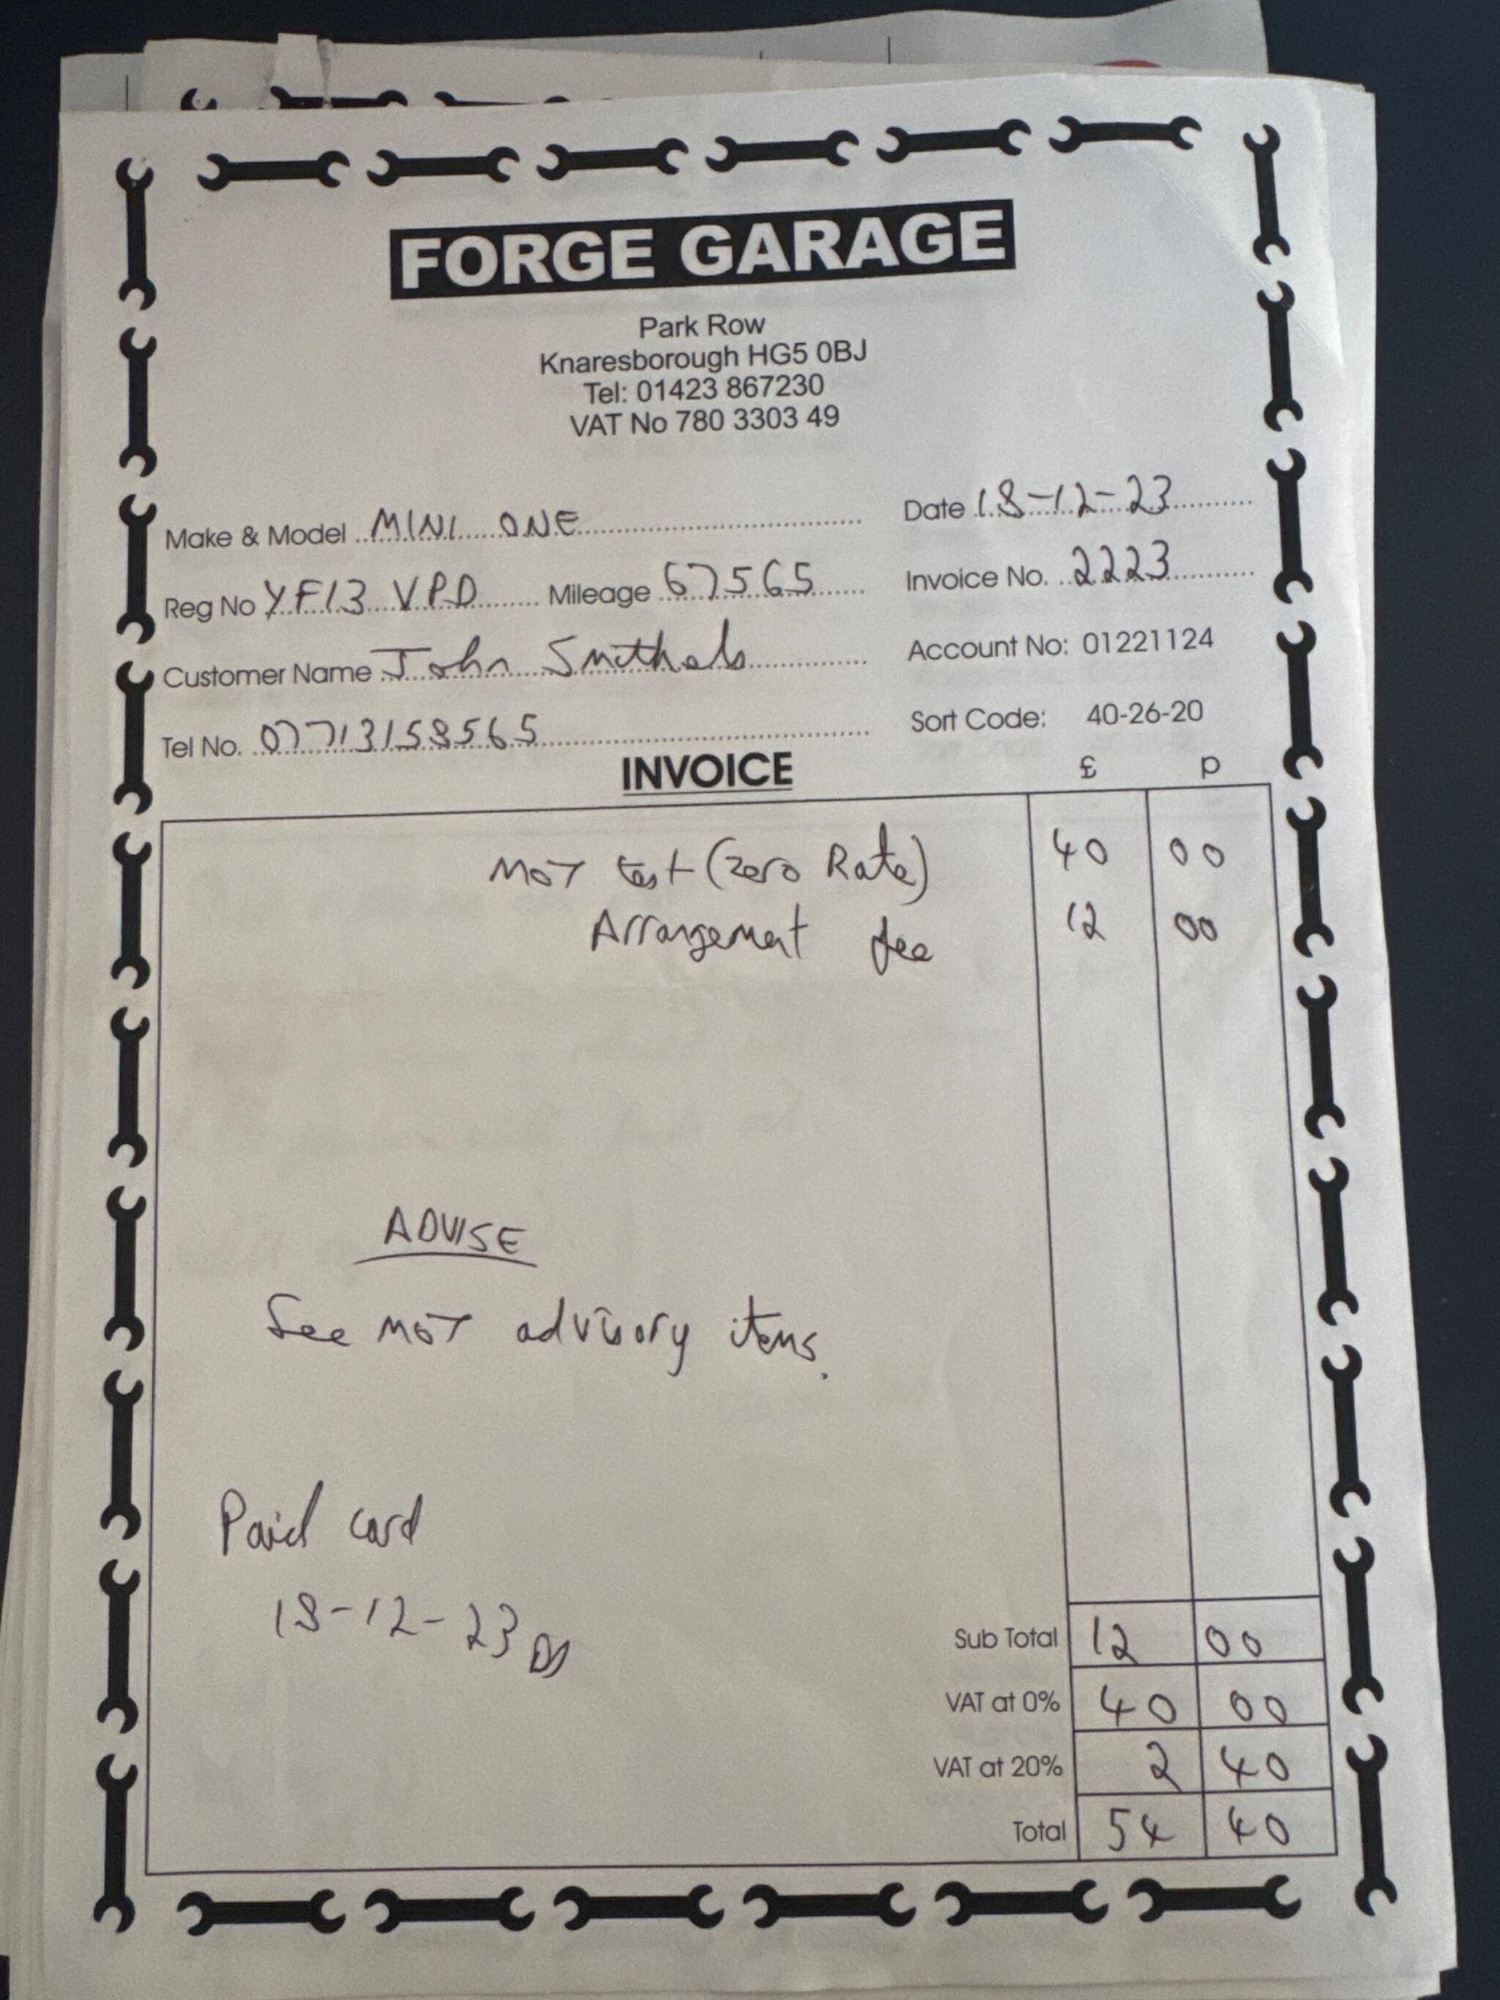 FORGE GARAGE
Park Row
Knaresborough HG5 0BJ
Tel: 01423 867230
VAT No 780 3303 49
Make & Model MINI ONE
Date 18-12-23
Reg No YF13 VPD Mileage 67565
Invoice No. 2223
Customer Name John Smithals
Account No: 01221124
Tel No. 07713158565
Sort Code: 40-26-20
INVOICE
£ p
MOT test (Zero Rate) 40 00
Arrangement fee 12 00
ADVISE
See MOT advisory items.
Paid card
18-12-23
Sub Total 12 00
VAT at 0% 40 00
VAT at 20% 2 40
Total 54 40